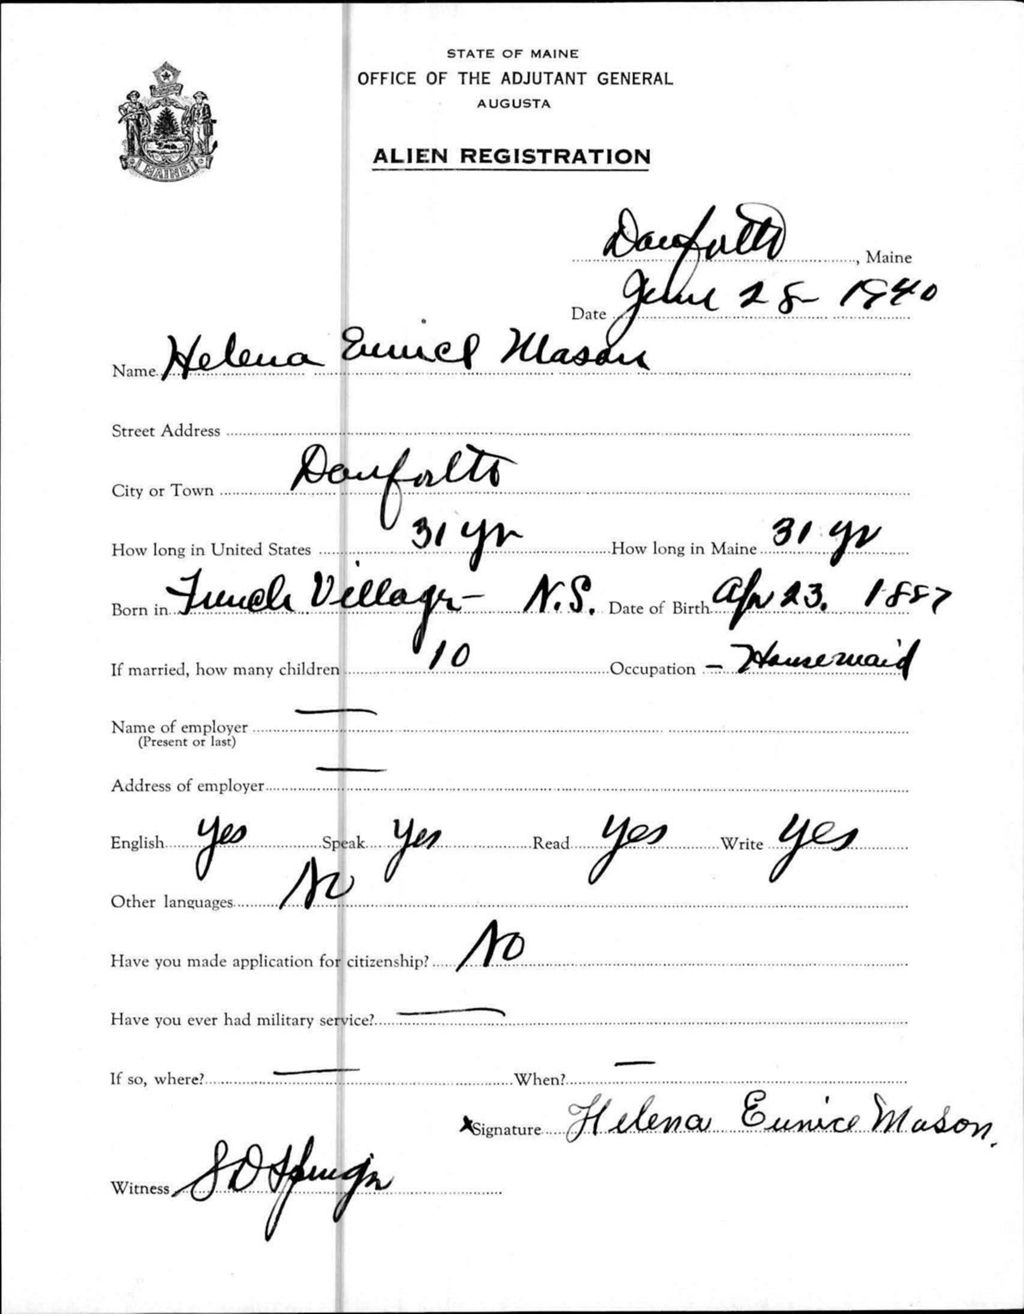 STATE OF MAINE
OFFICE OF THE ADJUTANT GENERAL
AUGUSTA
ALIEN REGISTRATION
MAINE
Danforth, Maine
Date June 28 1940
Name Helena Eunice Mason
Street Address
City or Town Danforth
How long in United States 31 yr How long in Maine 31 yr
Born in French Village - N.S. Date of Birth Apr 23. 1887
If married, how many children 10 Occupation - Housemaid
Name of employer —
(Present or last)
Address of employer —
English Yes Speak Yes Read Yes Write Yes
Other languages No
Have you made application for citizenship? No
Have you ever had military service? —
If so, where? — When? —
x Signature Helena Eunice Mason.
Witness S D